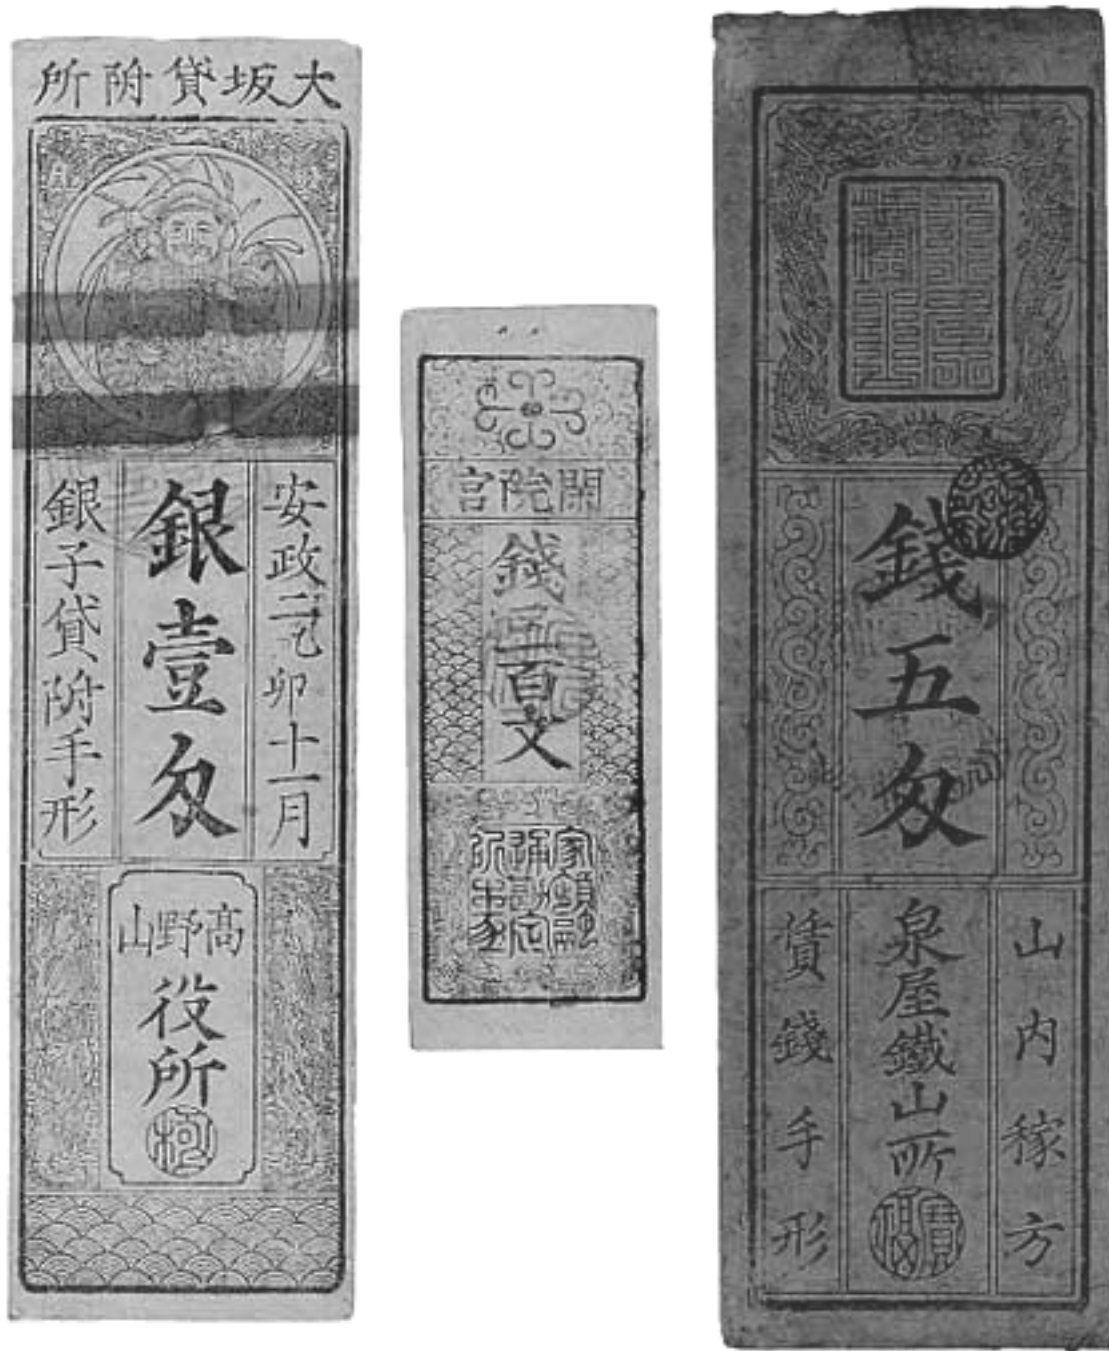 大坂貸附所
安政二乙卯十一月
銀壹匁
銀子貸附手形
高野山
役所
閑院宮
錢五百文
錢五匁
山内稼方
泉屋鐵山所
賃錢手形